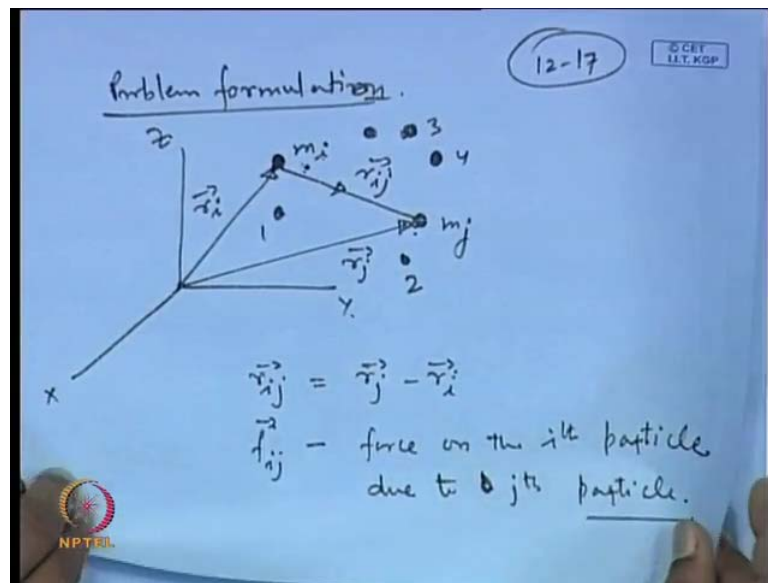 12-17
© CET
I.I.T. KGP
Problem formulation.
Z
m_i
3
4
\vec{r_i}
\vec{r_{ij}}
1
m_j
\vec{r_j}
2
Y
X
\vec{r_{ij}} = \vec{r_j} - \vec{r_i}
\vec{f_{ij}} - force on the ith particle
due to jth particle.
NPTEL